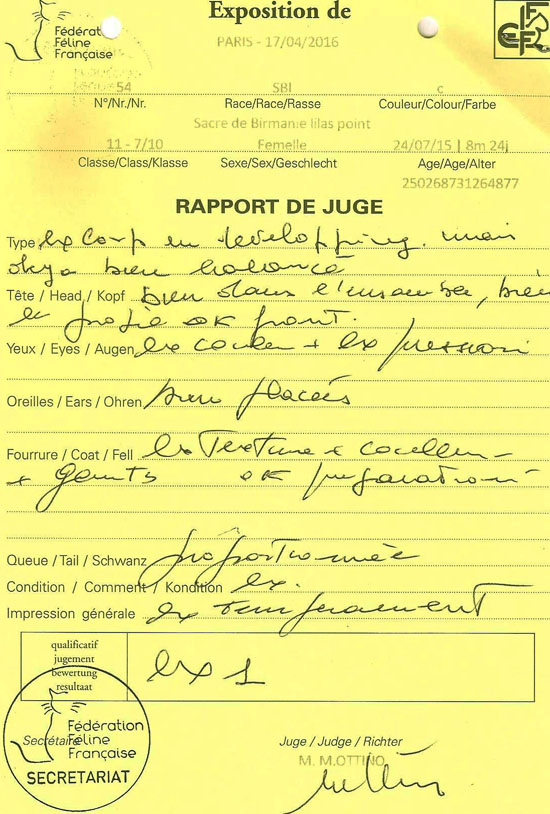 Exposition de
Fédération
Féline
Française
PARIS - 17/04/2016
FIFe
54 SBI c
N°/Nr./Nr. Race/Race/Rasse Couleur/Colour/Farbe
Sacre de Birmanie lilas point
11 - 7/10 Femelle 24/07/15 | 8m 24j
Classe/Class/Klasse Sexe/Sex/Geschlecht Age/Age/Alter
250268731264877
RAPPORT DE JUGE
Type ex corp en developping. mais
deja bien balancé
Tête / Head / Kopf bien dans l'ensamble, bien
le profil ok front.
Yeux / Eyes / Augen ex couleur + expression
Oreilles / Ears / Ohren bien placées
Fourrure / Coat / Fell ex Texture + couleur
+ gants ok preparation
Queue / Tail / Schwanz proportionnée
Condition / Comment / Kondition ex.
Impression générale ex temperament
qualificatif
jugement
bewertung
resultaat
ex 1
Fédération
Féline
Française
Secrétaire
SECRETARIAT
Juge / Judge / Richter
M. M.OTTINO